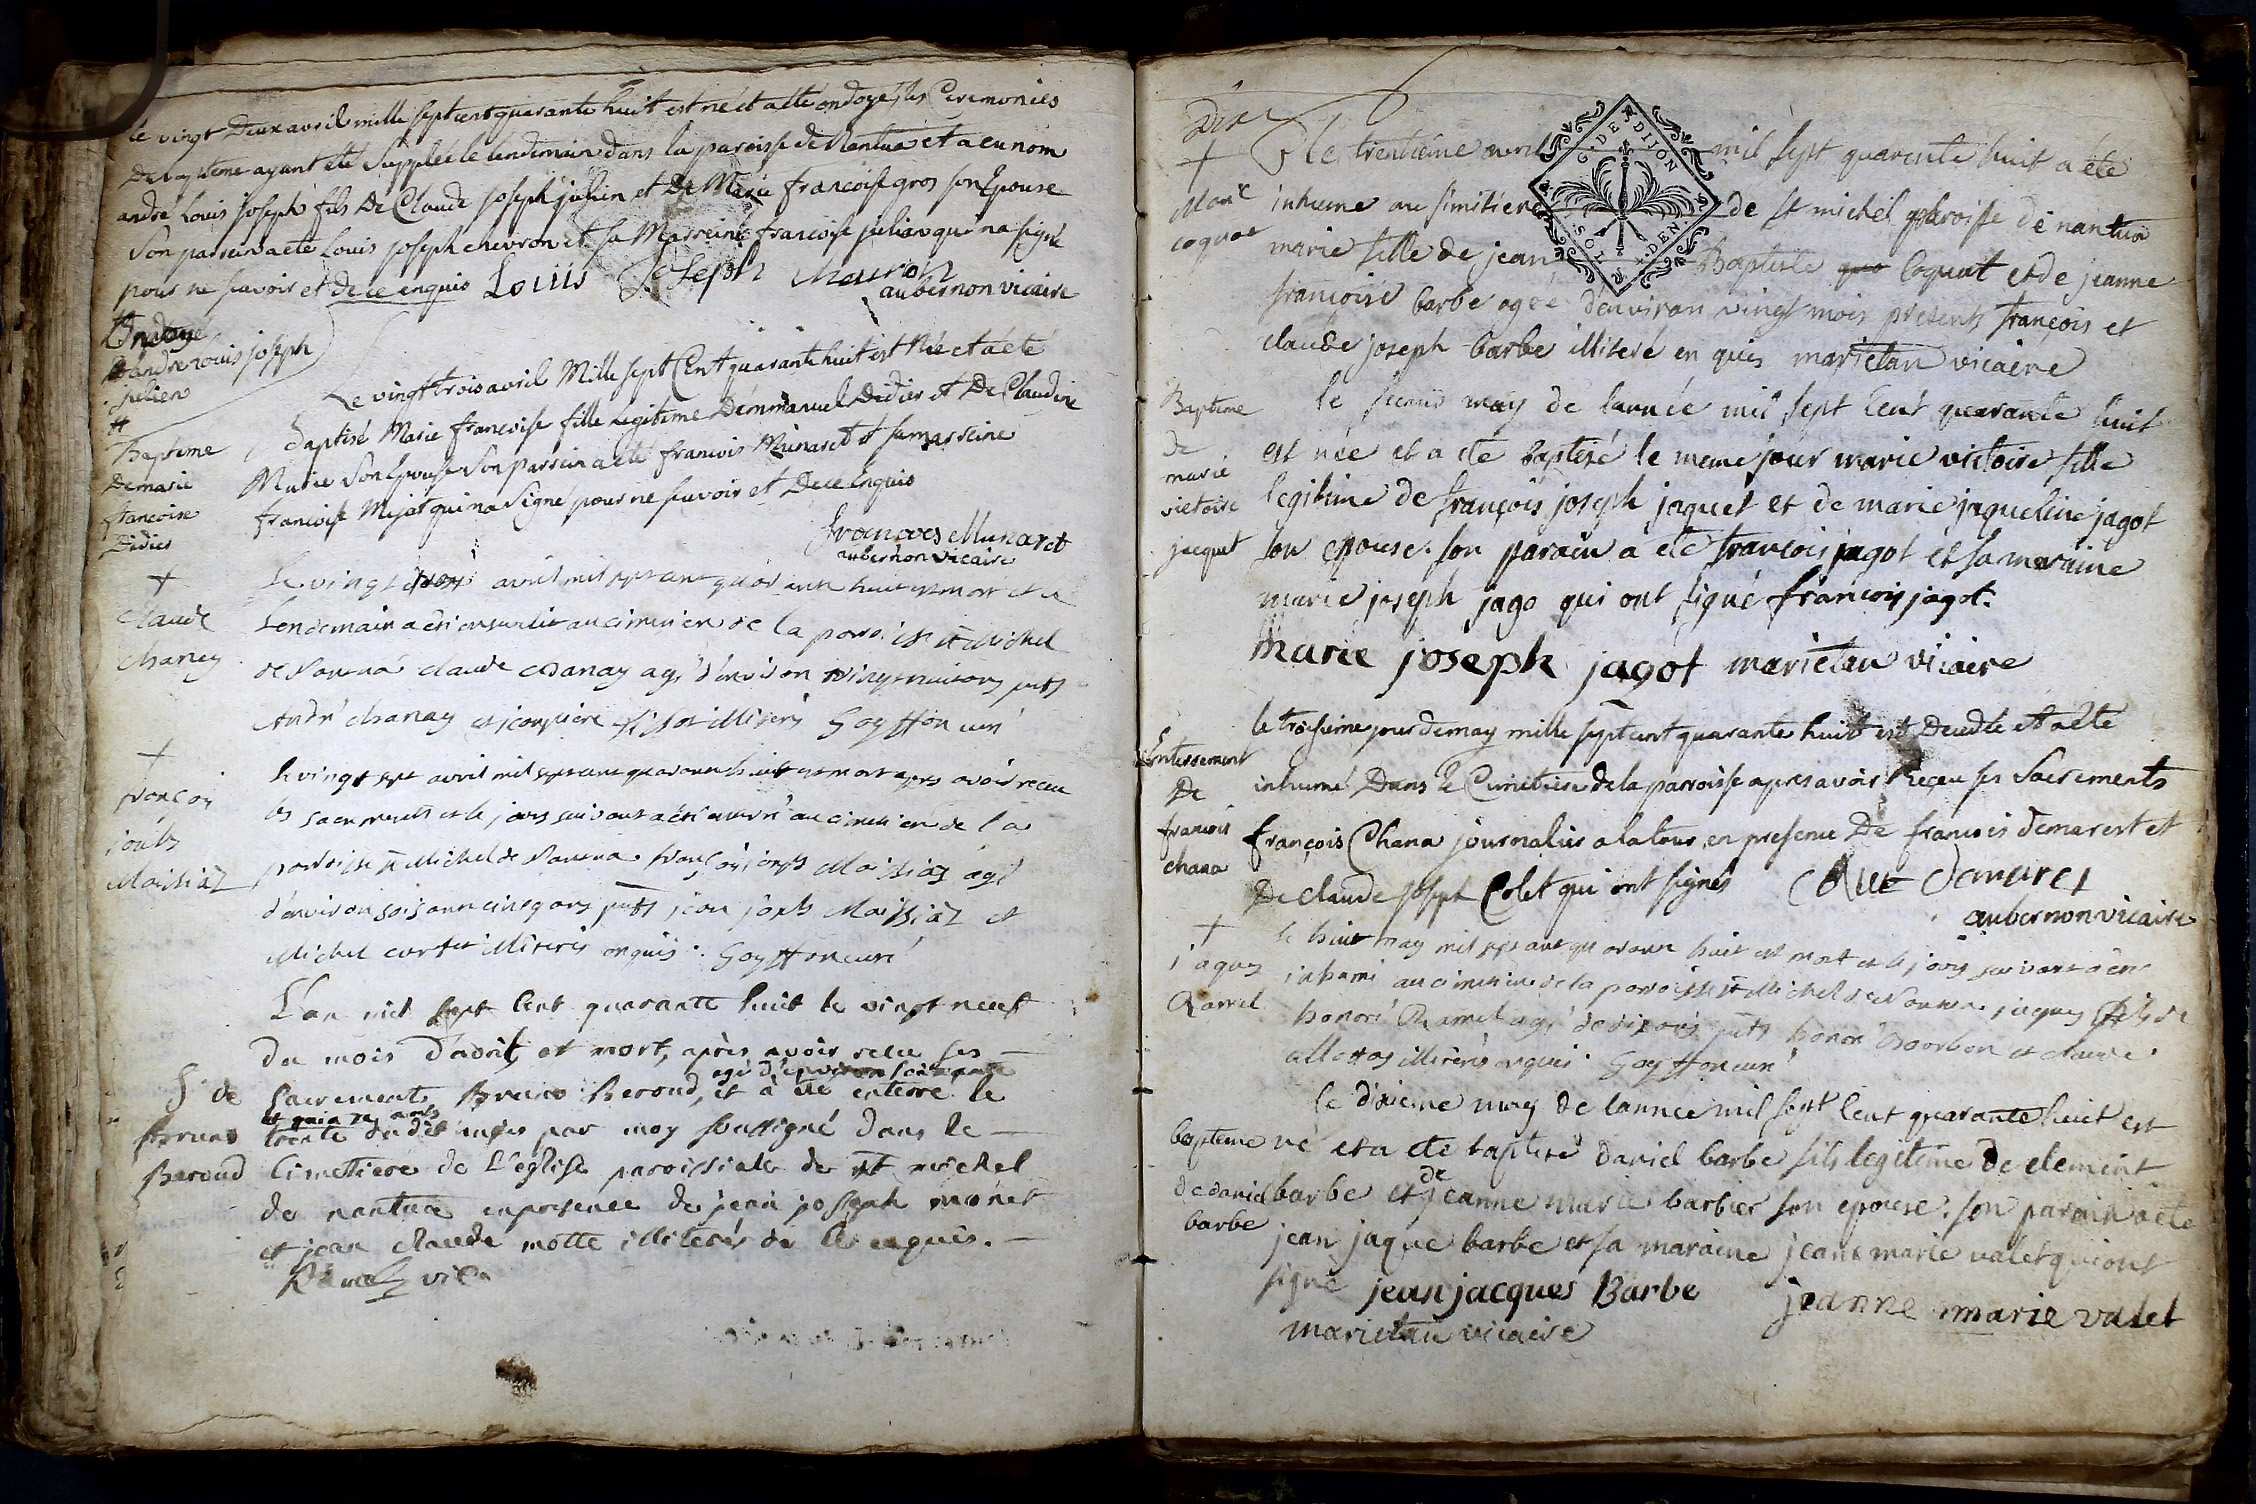 le vingt Deux avril mille sept cent quarante huit est né et a eté ondoyé, les Ceremonies
De baptême ayant eté Supplée le lendemain dans la paroisse de Nantua et a eu nom
andré Louis joseph fils De Claude joseph julien et De Marie francoise gros son Epouse
Son parrein a eté Louis joseph chevron et sa Marreine francoise julian qui na signé
pour ne scavoir et de ce enquis Louis Joseph Chevron
aubernon vicaire
Ondoyé
D'andre Louis joseph
julien
Le vingt trois avril Mille sept Cent quarante huit est Née et a eté
Baptisé Marie francoise fille Legitime D'emmanuel Didier et De Claudine
Baptême
De marie
francoise
Didier
Marie Son Epouse Son parrein a eté francois Munaret et sa marreine
francoise Mijat qui na signé pour ne scavoir et De ce enquis
francois Munaret
aubernon vicaire
+
Claude
chaney
Le vingt avril mil sept cent quarante huit est mort et le
Lendemain a été enseveli au cimetiere de la paroisse st Michel
de Nantua claude chanay agé d'environ vingt huit ans pnts
André chanay illiterés Goyffon curé
+
françois
josephs
Maissiaz
le vingt sept avril mil sept cent quarante huit est mort apres avoir receu
les sacrements et le jours suivant a été au cimetiere de la
paroisse st Michel de Nantua françois josephs Maissiaz agé
d'environ soisante cinq ans pnts jean josephs Maissiaz et
Michel illiterés enquis. Goyffon curé
L'an mil sept Cent quarante huit le vingt neuf
du mois d'avril, et mort, après avoir receu ses
agé d'environ soixante
S. de
Bruno
Beroud
Sacrements Bruno Beroud, et à été enterré le
et quinze ans
trente dudit mois par moy soussigné dans le
Cimettiere de L'église paroissiale de st michel
de nantua en presence de jean joseph monet
et jean claude motte illiterés de Ce enquis.
vic.
G. DE DIJON
SOL DEN
+
Marie
coquet
le trentieme avril mil sept quarente huit a ete
inhume au simitiere de st michel paroisse de nantua
marie fille de jean Baptiste Coquet et de jeanne
françoise barbe agée d'environ vingt mois presents francois et
claude joseph barbe illiteré en quis marietan vicaire
Baptême
de
marie
victoire
jacquet
le second may de lannée mil sept Cent quarante huit
est née et a ete baptisé le meme jour marie victoire fille
legitime de françois joseph jaquet et de marie jaqueline jagot
son epouse. son parain a ete françois jagot et sa maraine
marie joseph jago qui ont signé françois jagot.
marie joseph jagot marietan vicaire
Enterrement
De
francois
chana
le troisieme jour de may mille sept cent quarante huit est Decedé et a eté
inhumé Dans le Cimetiere de la parroisse apres avoir reçeu ses Sacrements
françois Chana journalier a la tour en presence De francois demarest et
De claude joseph Colet qui ont signés
aubernon vicaire
+
jaques
Ramel
le huit may mil sept cent quarante huit est mort et le jour suivant a été
inhumé au cimetiere de la paroisse st Michel de Nantua jaques fils de
honoré Ramel agé de dix ans pnts honoré Bourbon et claude
illiterés enquis. Goyffon curé
baptême
de daniel
barbe
le dixieme may de lannée mil sept Cent quarante huit est
né et a ete baptisé daniel barbe fils legitime de clement
barbe et de jeanne marie barbier son epouse. son parain a ete
jean jaque barbe et sa maraine jeane marie valet qui ont
signé jean jacques Barbe jeanne marie valet
marietan vicaire